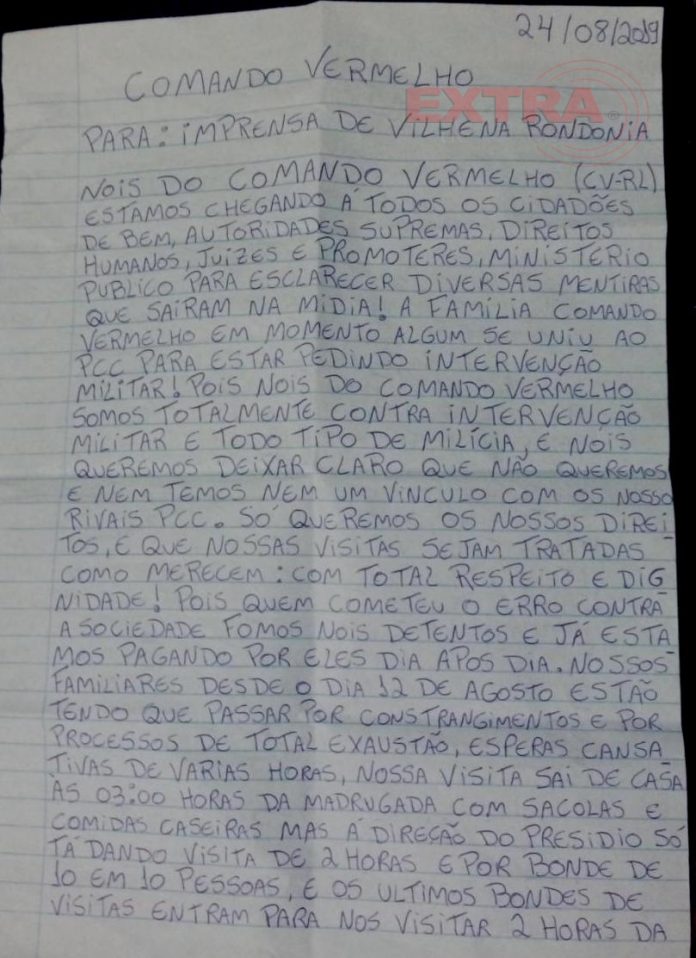 24/08/2019
COMANDO VERMELHO
EXTRA®
PARA: IMPRENSA DE VILHENA RONDONIA
NOIS DO COMANDO VERMELHO (CV-RL)
ESTAMOS CHEGANDO Á TODOS OS CIDADÕES
DE BEM, AUTORIDADES SUPREMAS, DIREITOS
HUMANOS, JUÍZES E PROMOTERES, MINISTÉRIO
PUBLICO PARA ESCLARECER DIVERSAS MENTIRAS
QUE SAÍRAM NA MÍDIA! A FAMÍLIA COMANDO
VERMELHO EM MOMENTO ALGUM SE UNIU AO
PCC PARA ESTAR PEDINDO INTERVENÇÃO
MILITAR! POIS NOIS DO COMANDO VERMELHO
SOMOS TOTALMENTE CONTRA INTERVENÇÃO
MILITAR E TODO TIPO DE MILÍCIA, E NOIS
QUEREMOS DEIXAR CLARO QUE NÃO QUEREMOS
E NEM TEMOS NEM UM VINCULO COM OS NOSSO
RIVAIS PCC. SÓ QUEREMOS OS NOSSOS DIREI-
TOS, E QUE NOSSAS VISITAS SEJAM TRATADAS
COMO MERECEM: COM TOTAL RESPEITO E DIG
NIDADE! POIS QUEM COMETEU O ERRO CONTRA
A SOCIEDADE FOMOS NOIS DETENTOS E JÁ ESTA
MOS PAGANDO POR ELES DIA APOS DIA. NOSSOS
FAMILIARES DESDE O DIA 12 DE AGOSTO ESTÃO
TENDO QUE PASSAR POR CONSTRANGIMENTOS E POR
PROCESSOS DE TOTAL EXAUSTÃO, ESPERAS CANSA
TIVAS DE VARIAS HORAS, NOSSA VISITA SAI DE CASA
ÀS 03:00 HORAS DA MADRUGADA COM SACOLAS E
COMIDAS CASEIRAS MAS A DIREÇÃO DO PRESIDIO SÓ
TÁ DANDO VISITA DE 2 HORAS E POR BONDE DE
10 EM 10 PESSOAS, E OS ULTIMOS BONDES DE
VISITAS ENTRAM PARA NOS VISITAR 2 HORAS DA